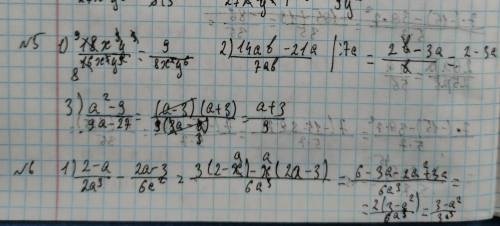 №5 1) 18x³y³/16x⁵y⁹ = 9/8x²y⁶ 2) 14ab - 21a/7ab |:7a = 2b - 3a/b = 2 - 3a
3) a² - 9/9a - 27 = (a-3)(a+3)/9(3a-9) = a+3/9
№6 1) 2-a/2a³ - 2a-3/6a² = 3(2-a) - a(2a-3)/6a³ = 6-3a-2a²+3a/6a³ =
= 2(3-a²)/6a³ = 3-a²/3³